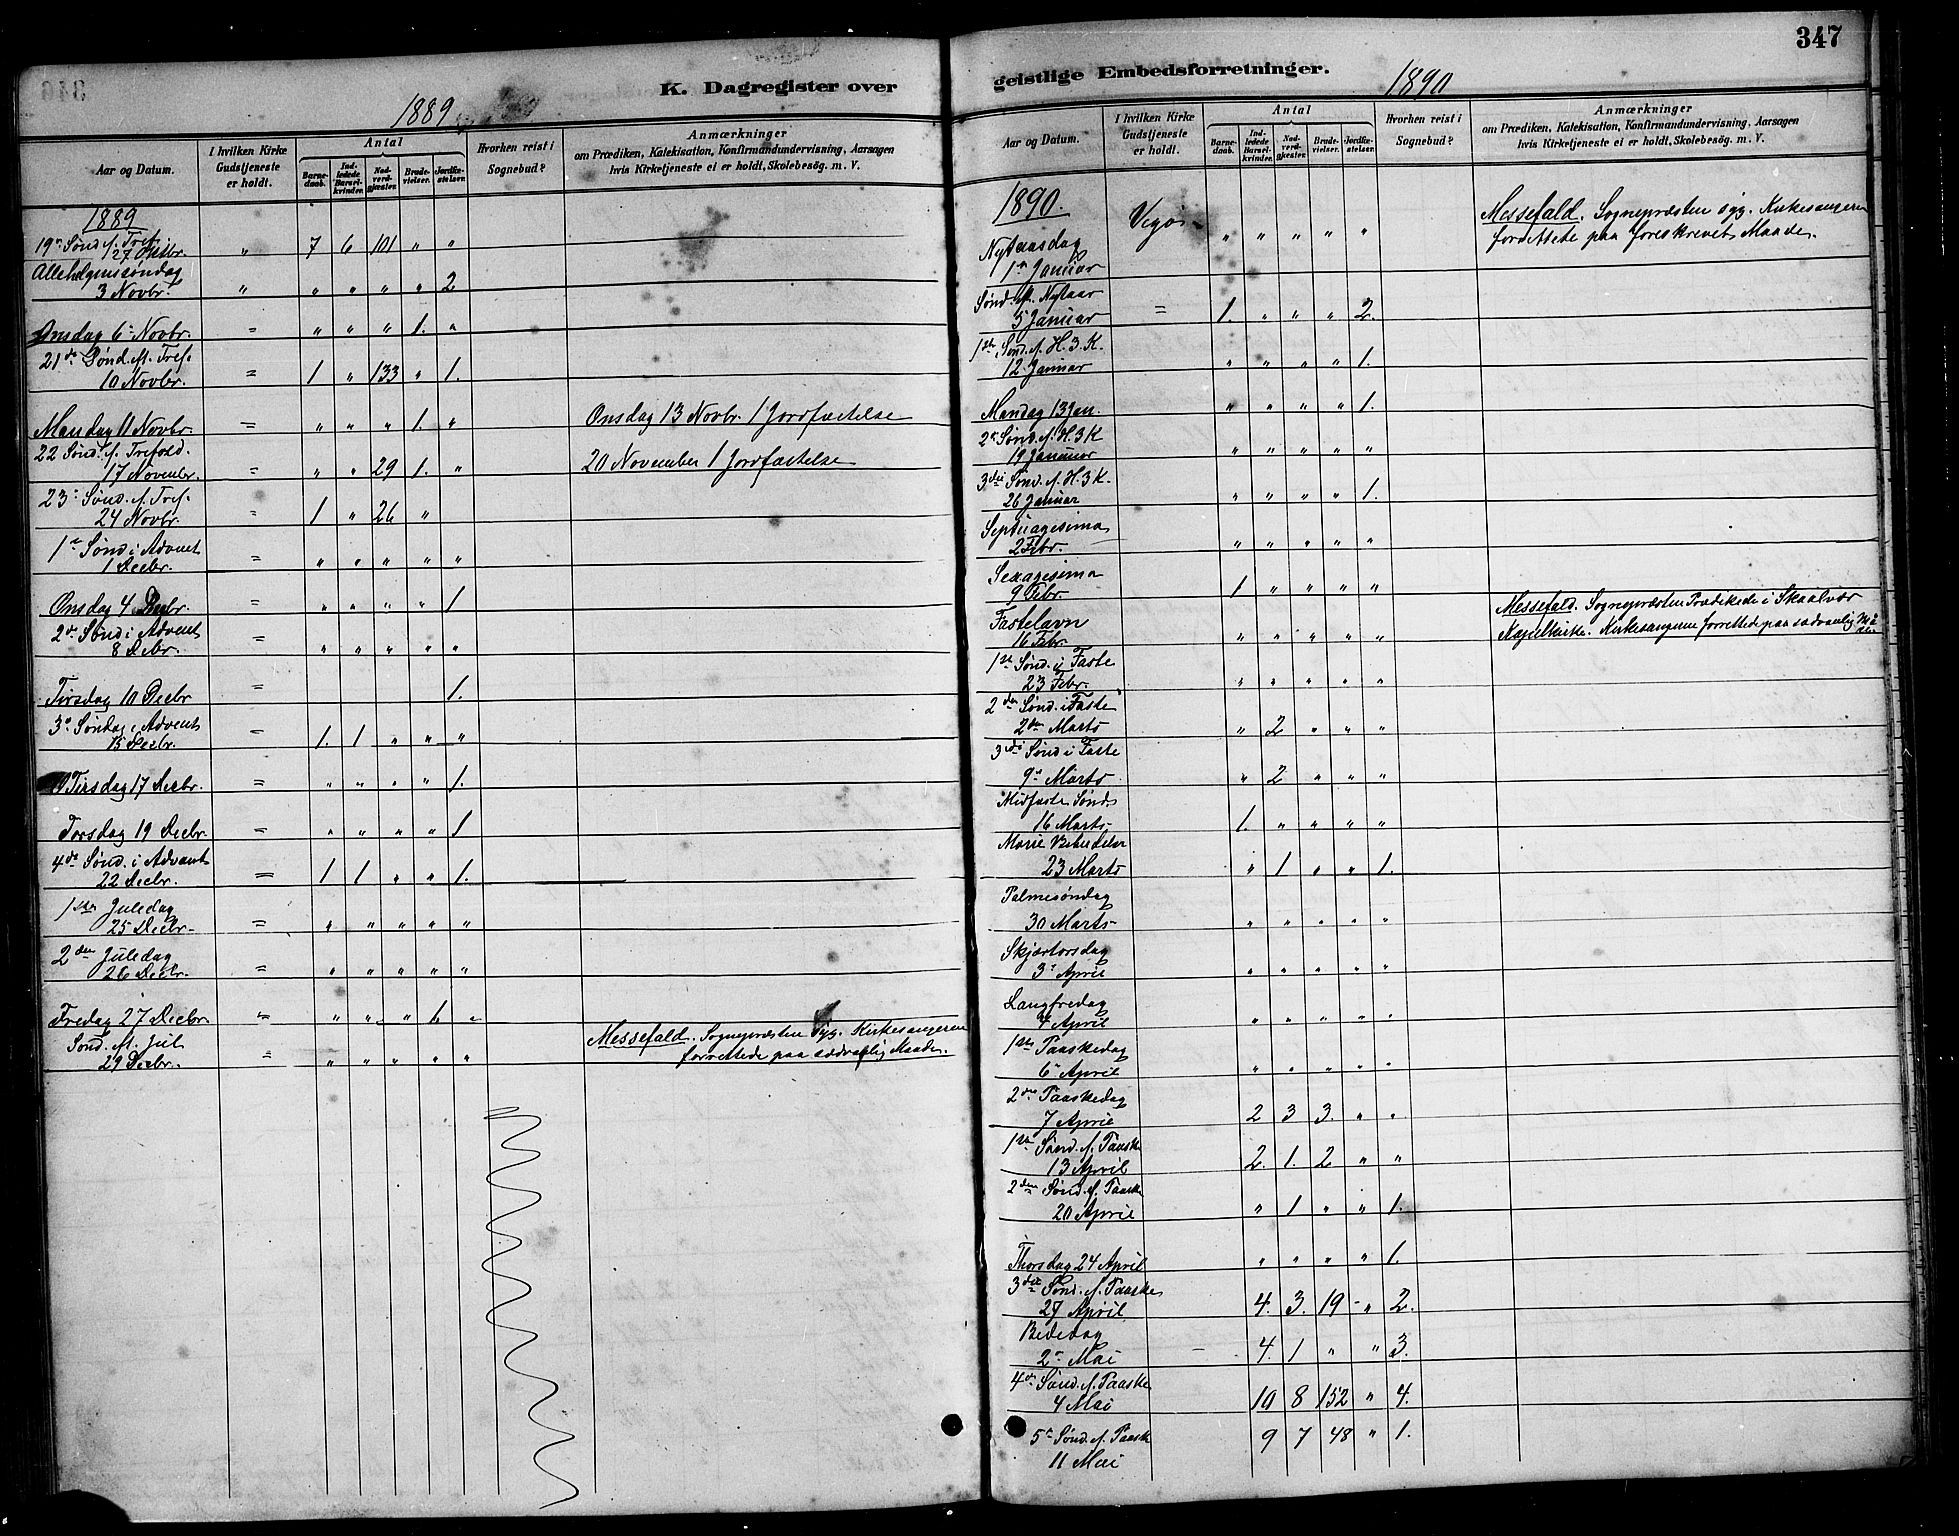 K. Dagregister over
1889
Aar og Datum.
I hvilken Kirke Gudstjeneste er holdt.
Antal
Barne-daab.
Ind-ledede Barsel-kvinder.
Nad-verd-gjæster.
Brude-vielser.
Jordfæ-stelser.
Hvorhen reist i Sognebud?
Anmærkninger
om Prædiken, Katekisation, Konfirmandundervisning, Aarsagen
hvis Kirketjeneste ei er holdt, Skolebesøg. m. V.
1889
19de Sønd. f. Tref. 27 Oktbr. " 7 6 101 " "
Allehelgenssøndag 3 Novbr. " " " " " 2
Onsdag 6te Novbr. = " " " 1. "
21de Sønd. f. Tref. 10 Novbr. = 1 " 133 " 1.
Mandag 11 Novbr. = " " " 1. " Onsdag 13 Novbr. 1 Jordfæstelse
22 Sønd. f. Trefold. 17 Novembr. = " " 29 1. " 20 November 1 Jordfæstelse
23de Sønd. f. Tref. 24 Novbr. = 1 " 26 "
1ste Sønd i Advent 1 Decbr. = " " " " "
Onsdag 4 Decbr. = " " " " 1
2den Sønd i Advent 8 Decbr. = " " " " "
Tirsdag 10 Decbr = 1.
3die Søndag i Advent 15 Decbr. = 1. 1 " " "
Tirsdag 17 Decbr. = " " " " 1.
Torsdag 19 Decbr. = " " " " 1
4de Sønd. i Advent 22 Decbr. = 1 1 " " 1.
1ste Juledag 25 Decbr. = " " " " "
2den Juledag 26 Decbr. = " " " " "
Fredag 27 Decbr. = " " " 1. "
Sønd. M. Jul 29 Decbr. = " " " " " Messefald. Sognepræsten Syg. Kirkesangeren
forrettede paa sædvanlig Maade.
347
geistlige Embedsforretninger.
1890
Aar og Datum.
I hvilken Kirke Gudstjeneste er holdt.
Antal
Barne-daab.
Ind-ledede Barsel-kvinder.
Nad-verd-gjæster.
Brude-vielser.
Jordfæ-stelser.
Hvorhen reist i Sognebud?
Anmærkninger
om Prædiken, Katekisation, Konfirmandundervisning, Aarsagen
hvis Kirketjeneste ei er holdt, Skolebesøg. m. V.
1890. Messefald. Sognepræsten syg. Kirkesangeren
Nytaarsdag 1ste Januar Vegø " " " " " forrettede paa foreskrevet Maade.
Sønd. M. Nytaar 5 Januar = 1. " " " 2.
1ste Sønd. f. H. 3. K. 12 Januar " " " " 1.
Mandag 13 Jan. " " " " 1.
2den Sønd. f. H. 3 K 19 Januar " " " " "
3die Sønd. f. H. 3 K. 26 Januar " " " " 1.
Septuagesima 2 Febr. " " " " "
Sexagesima 9 Febr 1 " " " "
Fastelavn 16 Febr. " " " " " Messefald. Sognepræsten Prædikede i Skaalvær
Kapelkirke. Kirkesangeren forrettede paa sædvanlig
1ste Sønd. i Faste 23 Febr. " " " " "
2den Sønd. i Faste 2den Marts " 2 " " "
3die Sønd i Faste 9de Marts " 2 " " "
Midfaste Sønd. 16 Marts. 1. " " " "
Marie Bebudelse 23 Marts " 1 " " 1.
Palmesøndag 30 Marts " " " " "
Skjærtorsdag 3die April " " " " "
Langfredag 4 April " " " " "
1ste Paaskedag 6te April " " " " "
2den Paaskedag 7 April 2 3 3. " "
1ste Sønd. f. Paaske 13 April 2. 1. 2 " "
2den Sønd. f. Paaske 20 April " 1 " " 1.
Thorsdag 24 April " " " " 1.
3die Sønd. f. Paaske 27 April 4. 3. 19 " 2.
Bededag 2den Mai 4. 1 " " 3.
4de Sønd. f. Paaske 4 Mai 10 8 152 " 4.
5te Sønd. f. Paaske 11 Mai 9 7 48 " 1.